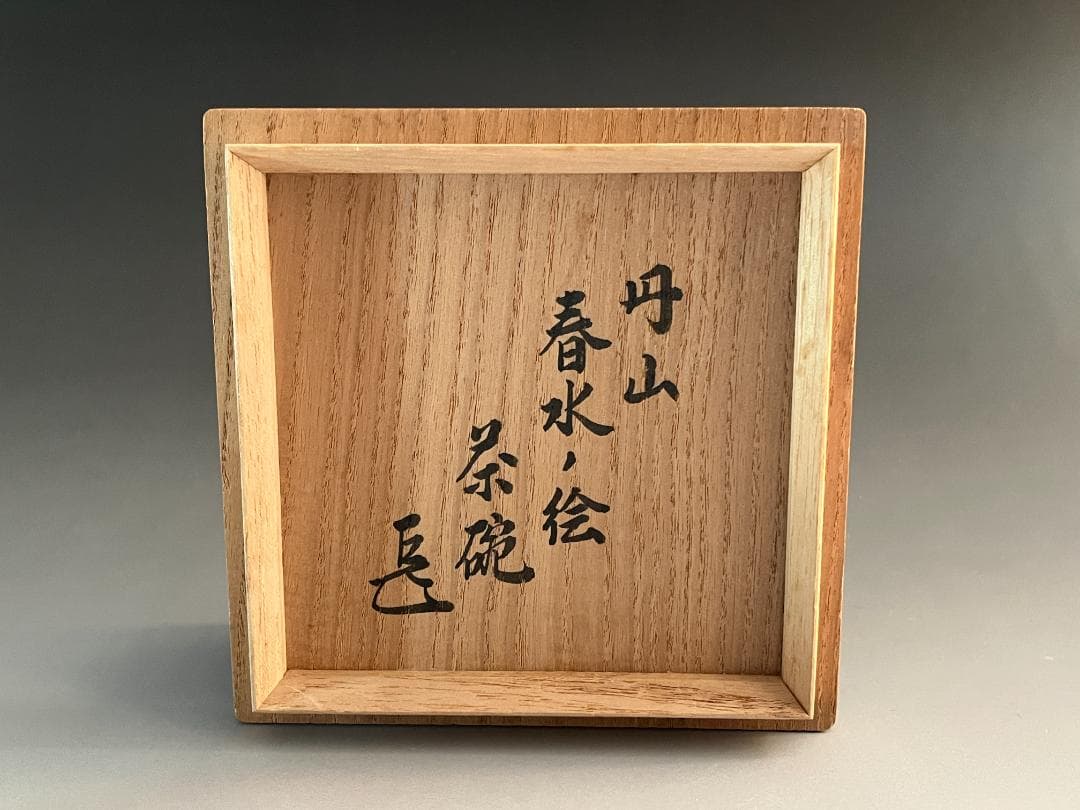 丹山
春水ノ絵
茶碗